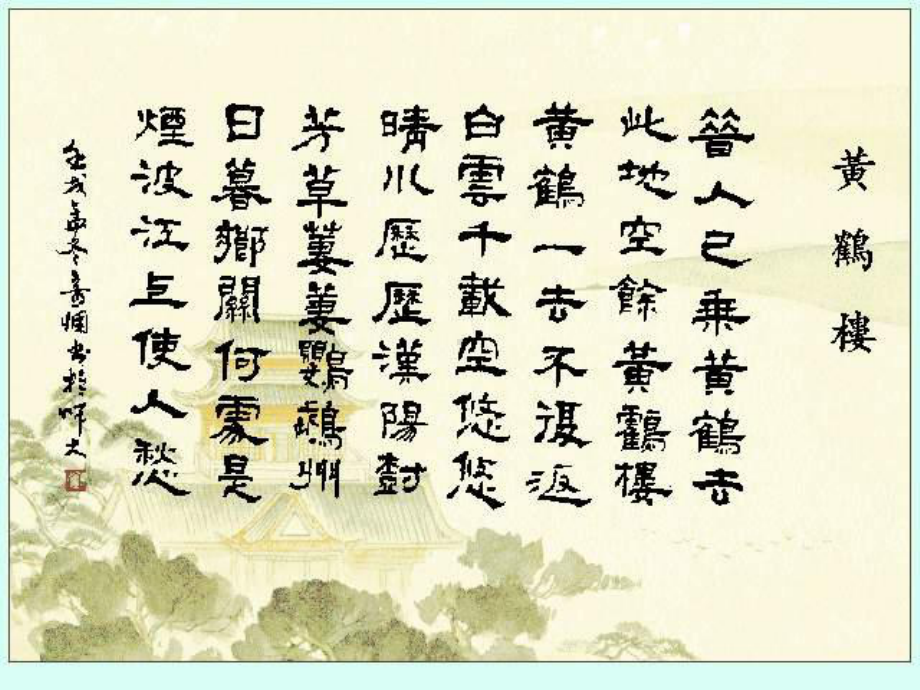 黃鶴樓
昔人已乘黃鶴去
此地空餘黃鶴樓
黃鶴一去不復返
白雲千載空悠悠
晴川歷歷漢陽樹
芳草萋萋鸚鵡州
日暮鄉關何處是
煙波江上使人愁
戌孟冬書於師大